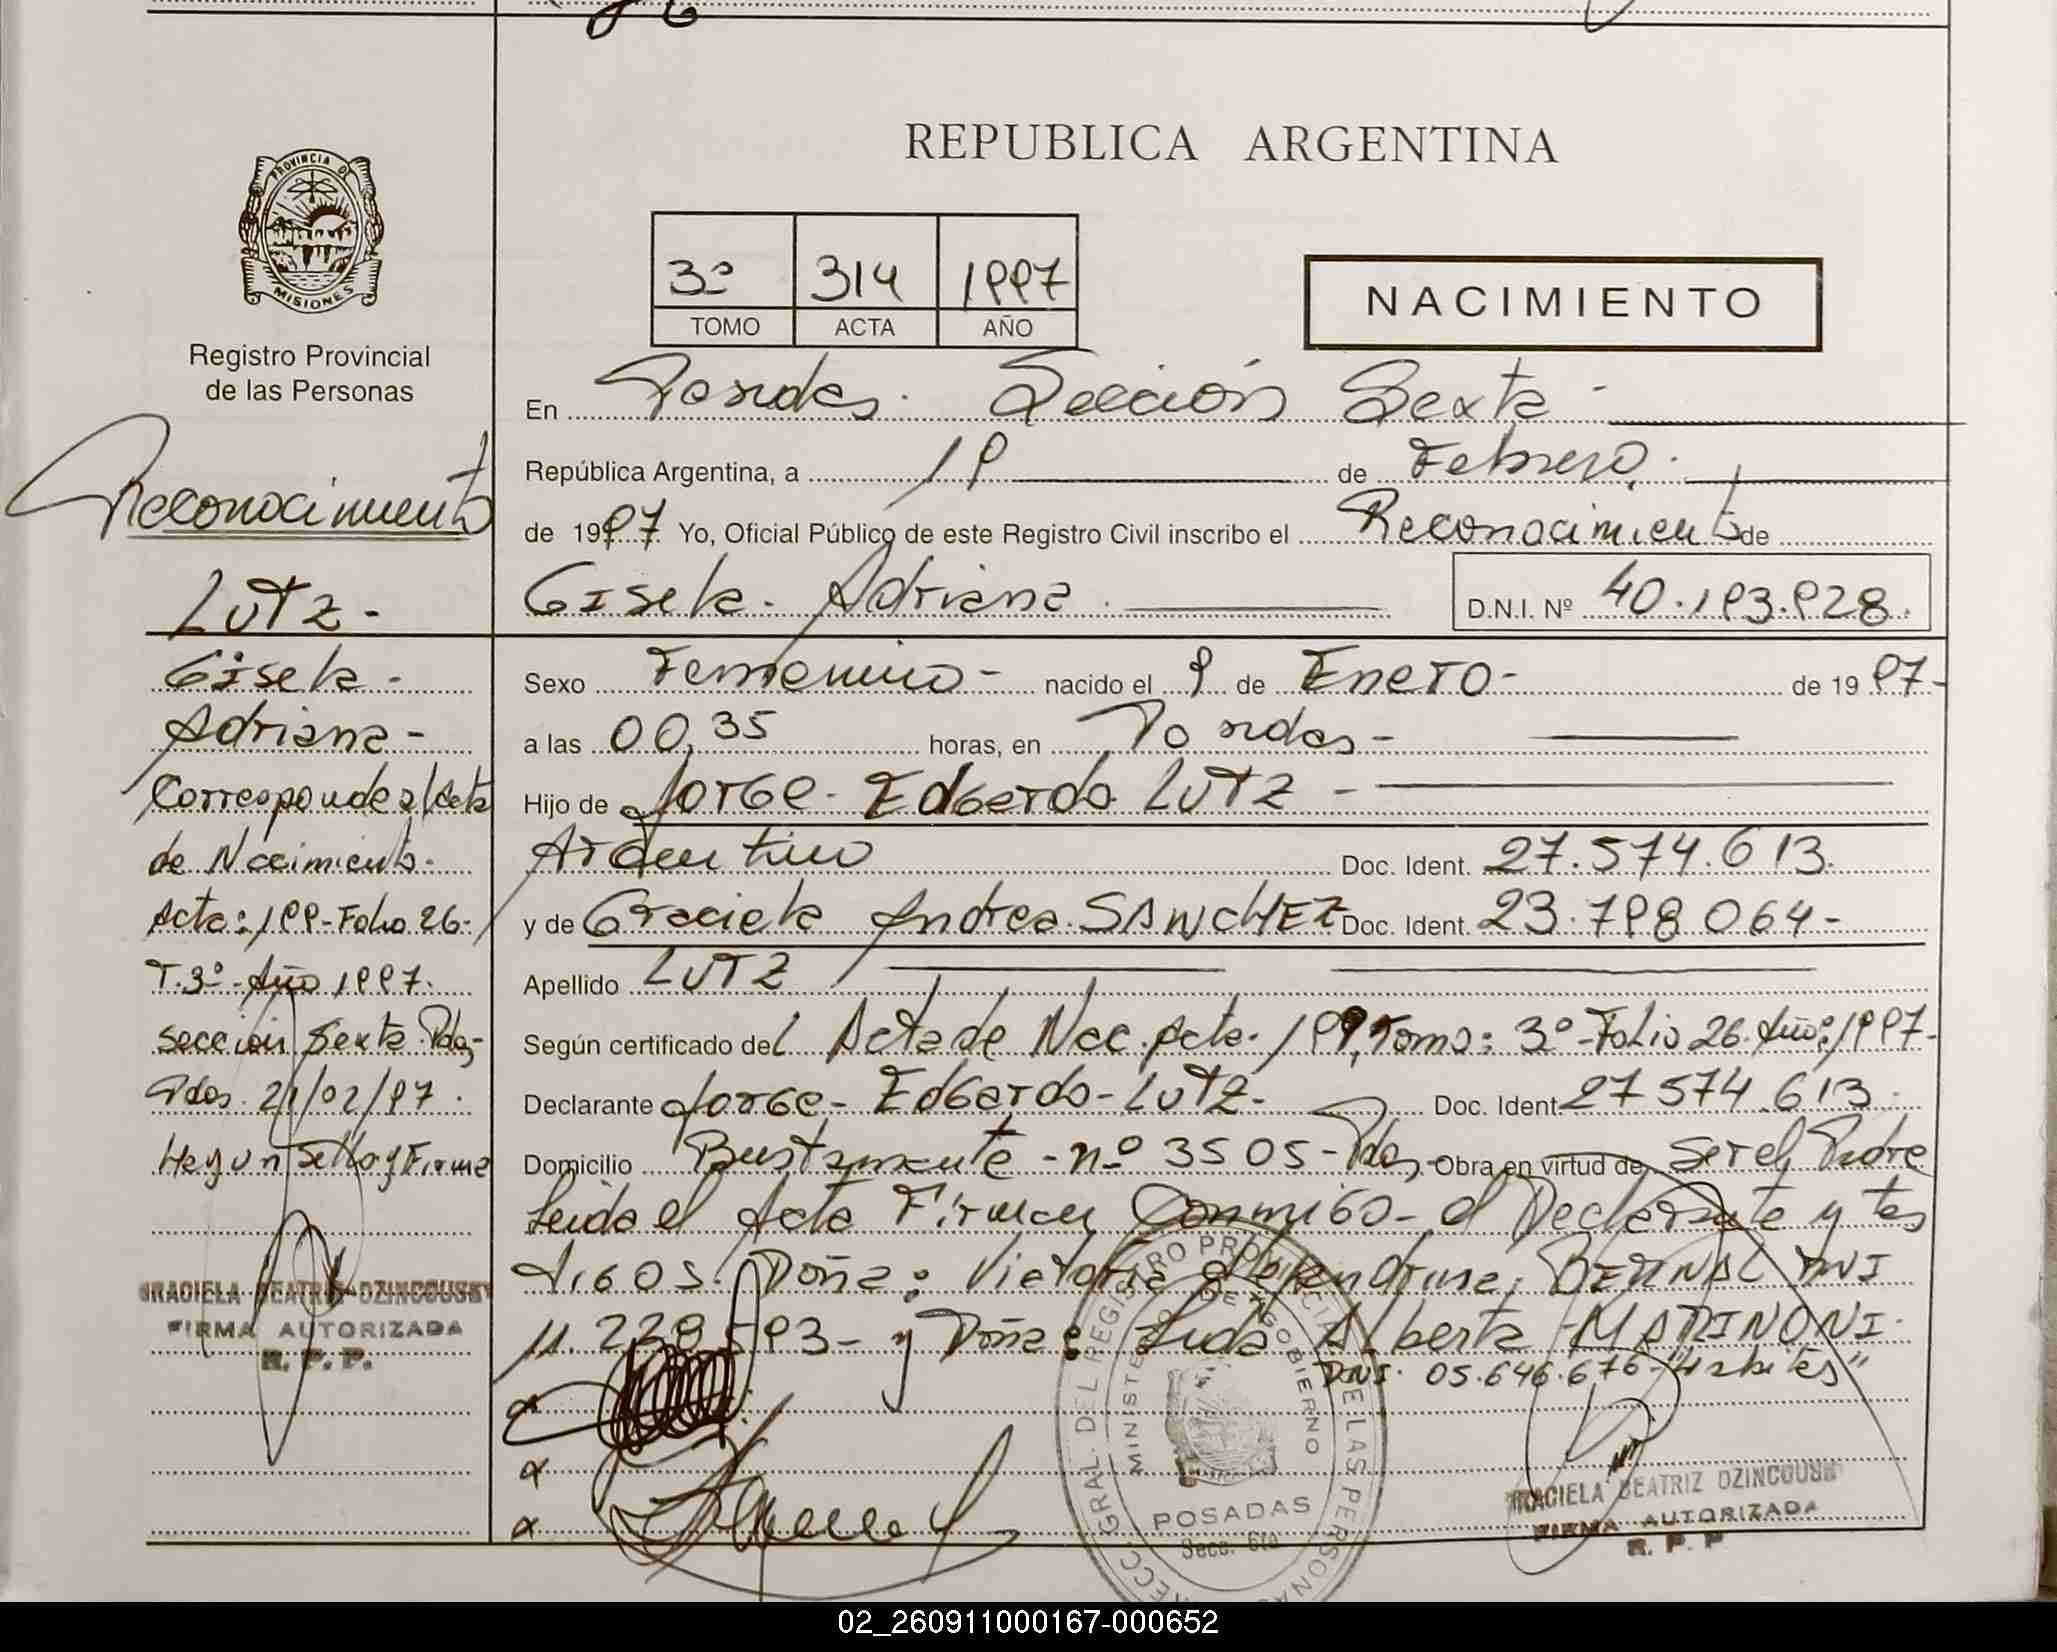 REPUBLICA ARGENTINA
PROVINCIA DE
MISIONES
Registro Provincial
de las Personas
3º 314 1997
TOMO ACTA AÑO
NACIMIENTO
En Posadas. Sección Sexta -
República Argentina, a 19 de Febrero.
de 1997. Yo, Oficial Público de este Registro Civil inscribo el Reconocimiento de
Gisela. Adriana. D.N.I. Nº 40.193.928.
Sexo Femenino - nacido el 9 de Enero - de 1997-
a las 00,35 horas, en Posadas -
Hijo de Jorge - Edgardo LUTZ -
Argentino Doc. Ident. 27.574.613.
y de Graciela Andrea. SANCHEZ Doc. Ident. 23.798.064-
Apellido LUTZ
Según certificado del Acta de Nac. Acta. 199, Tomo: 3º - Folio 26. Año: 1997-
Declarante Jorge - Edgardo - LUTZ - Doc. Ident. 27 574.613
Domicilio Bustamante - nº 3505 - Pdas, - Obra en virtud de Ser el Padre
Leida el Acta Firman Conmigo - el Declarante y tes
tigos. Doña: Victoria Alejandrina, BERNAL DNI
11.229.593- y Doña: Lida Alberta - MARINONI.
DNI. 05.646.676-
Reconocimiento
LUTZ -
Gisela -
Adriana -
Corresponde a/Acta
de Nacimiento.
Acta: 199 - Folio 26-
T. 3º - Año 1997.
Seccion Sexta Pdas-
Pdas. 21/02/97.
Hay un Sello y Firma
GRACIELA BEATRIZ DZINCOUSKY
FIRMA AUTORIZADA
R. P. P.
DIRECC. GRAL. DEL REGISTRO PROVINCIAL DE LAS PERSONAS
MINISTERIO DE GOBIERNO
POSADAS
Secc. 6ta
GRACIELA BEATRIZ DZINCOUSKY
FIRMA AUTORIZADA
R. P. P
02_260911000167-000652